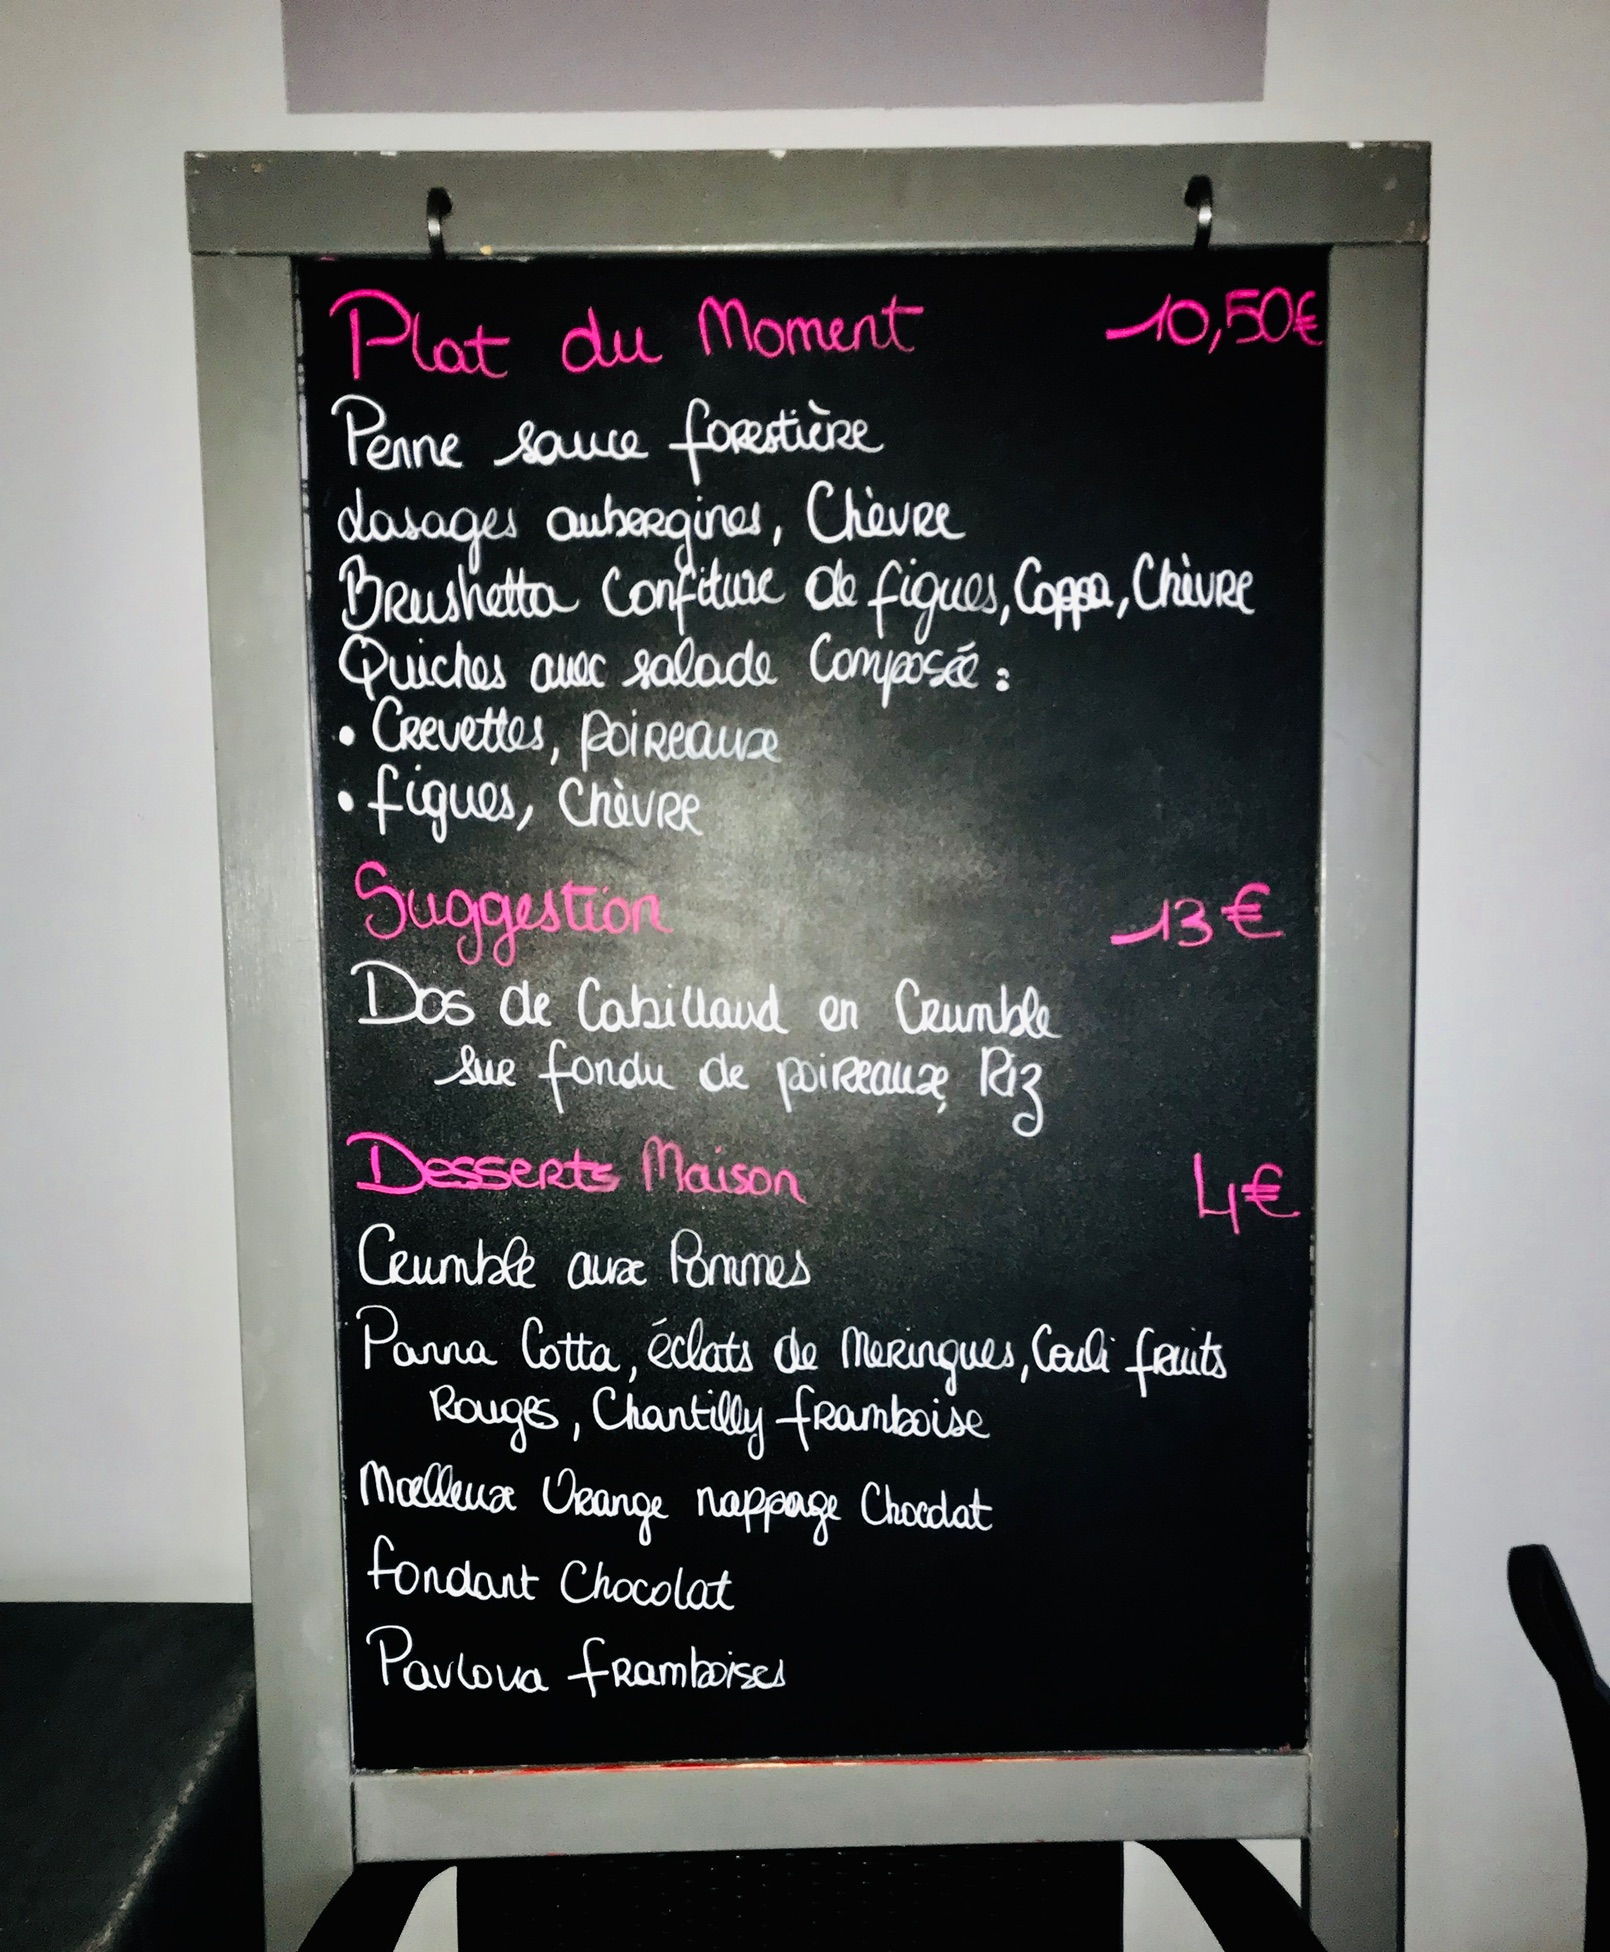 Plat du Moment 10,50€
Penne sauce forestière
Lasages aubergines, Chèvre
Brushetta Confiture de figues, Coppa, Chèvre
Quiches avec salade Composée :
• Crevettes, poireaux
• figues, Chèvre
Suggestion 13€
Dos de Cabillaud en Crumble
sur fondu de poireaux, Riz
Desserts Maison 4€
Crumble aux Pommes
Panna Cotta, éclats de Meringues, Couli fruits
Rouges, Chantilly framboise
Moelleux Orange nappage Chocolat
fondant Chocolat
Pavlova framboises